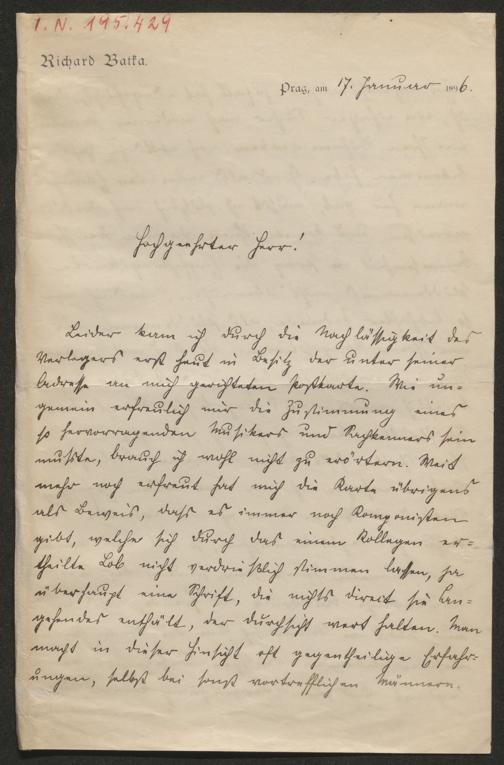 I. N. 195.429
Richard Batka.
Prag, am 17. Januar 1896.
Hochgeehrter Herr!
Leider kam ich durch die Nachlässigkeit des
Verlegers erst heut in Besitz der unter seiner
Adresse an mich gerichteten Postkarte. Wie un-
gemein erfreulich mir die Zustimmung eines
so hervorragenden Musikers und Sachkenners sein
musste, brauch ich wohl nicht zu erörtern. Weit
mehr noch erfreut hat mich die Karte übrigens
als Beweis, dass es immer noch Komponisten
gibt, welche sich durch das einem Kollegen er-
theilte Lob nicht verdrießlich stimmen lassen, ja
überhaupt eine Schrift, die nichts direct sie An-
gehendes enthält, der Durchsicht wert halten. Man
macht in dieser Hinsicht oft gegentheilige Erfahr-
ungen, selbst bei sonst vortrefflichen Männern.